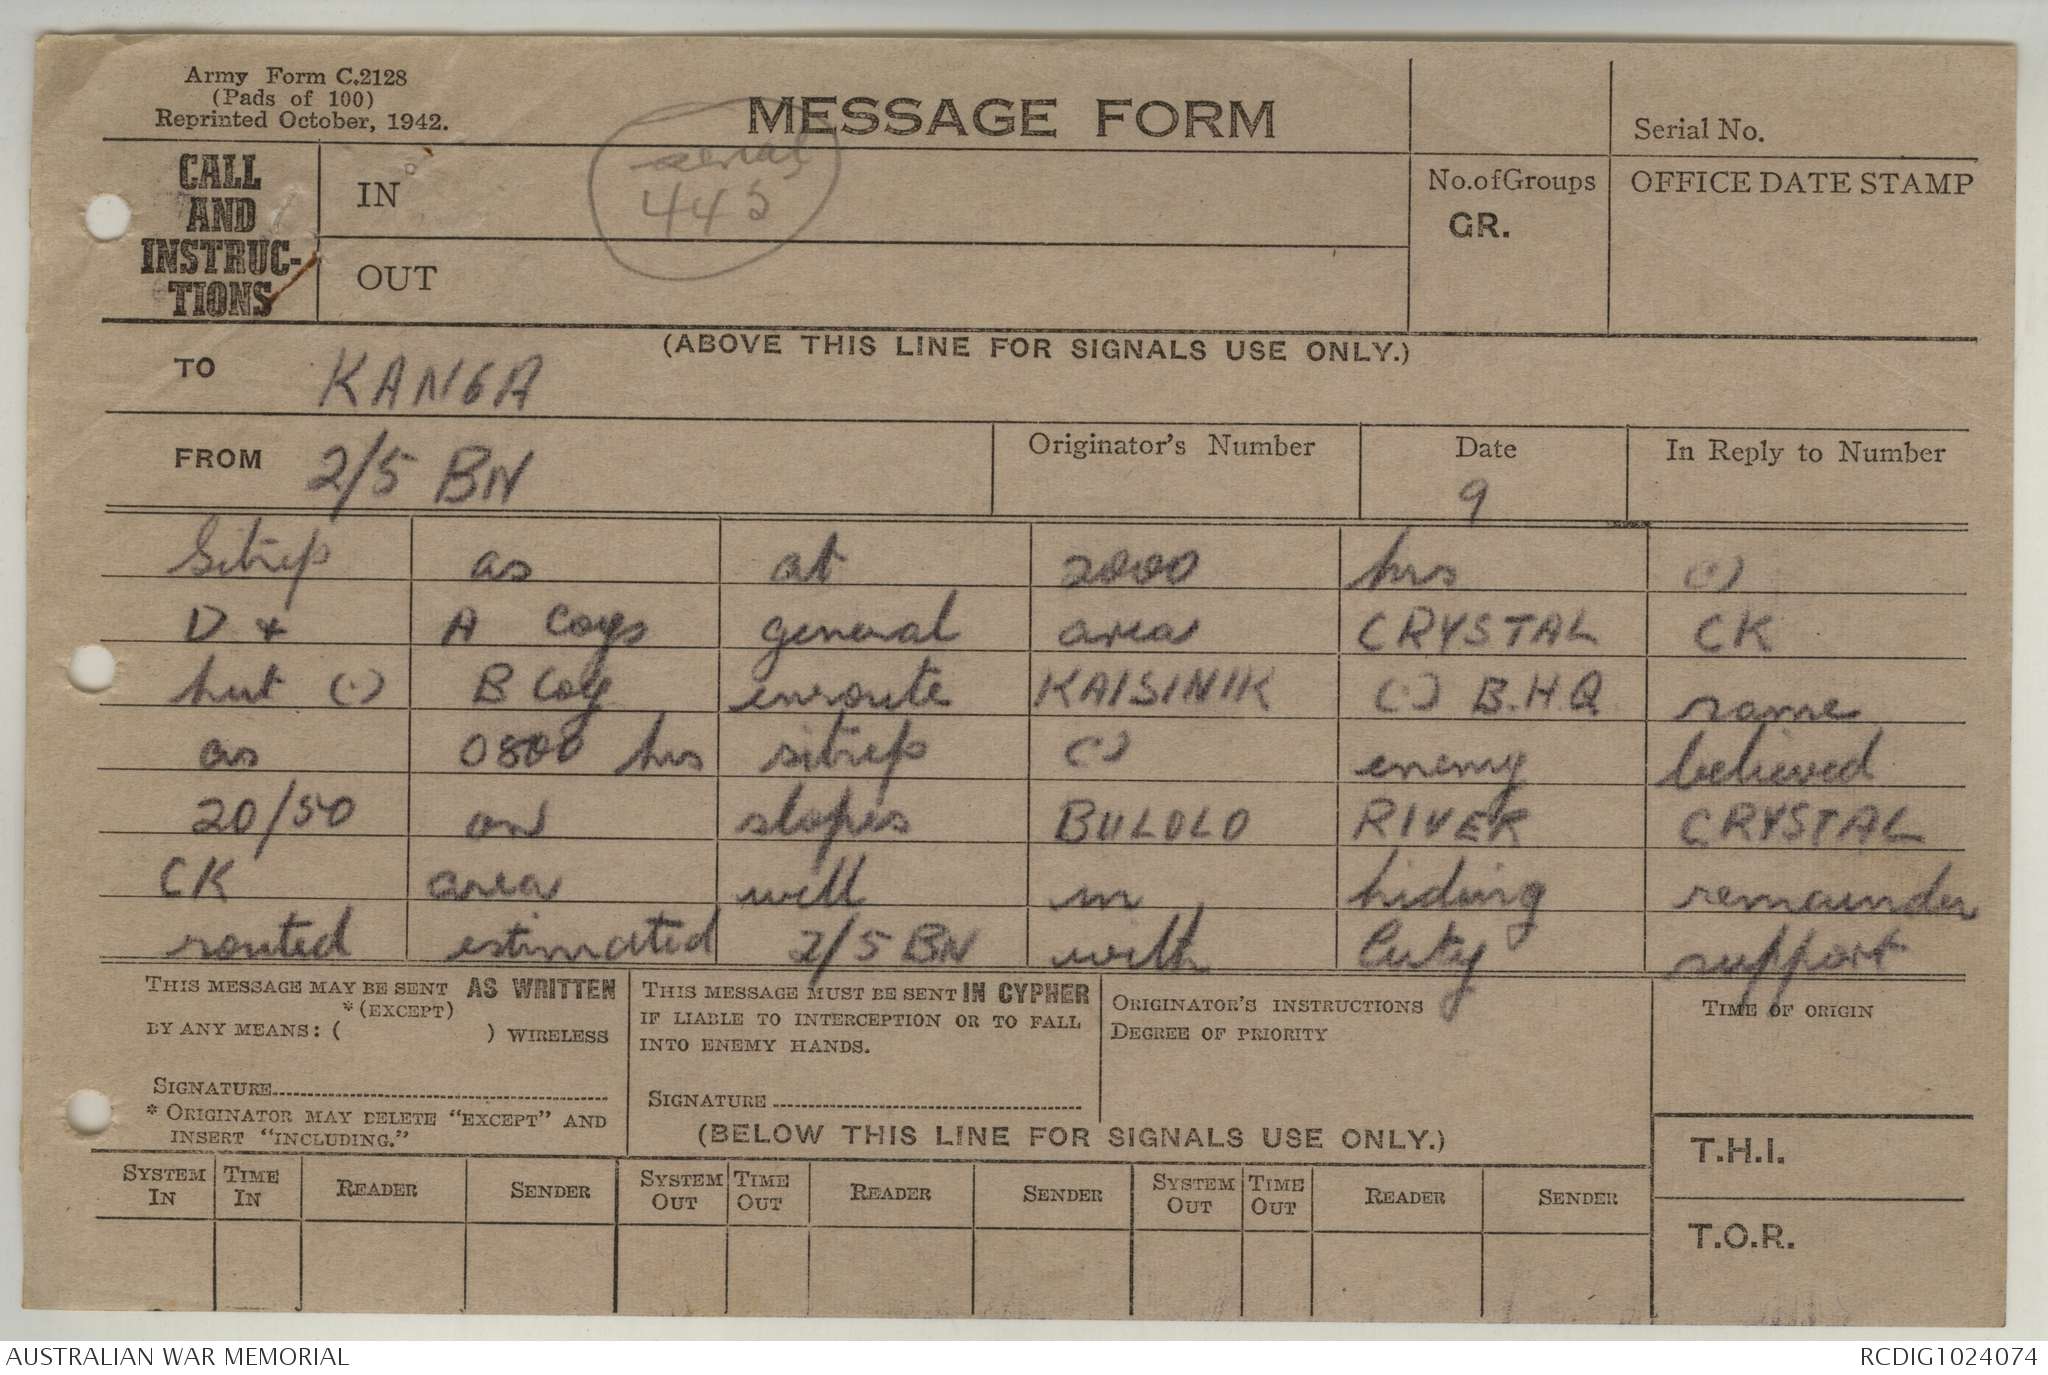 Army Form C.2128
(Pads of 100)
Reprinted October, 1942.
MESSAGE FORM
Serial No.
CALL AND INSTRUC-TIONS
IN
serial
445
No. of Groups
GR.
OFFICE DATE STAMP
OUT
(ABOVE THIS LINE FOR SIGNALS USE ONLY.)
TO KANGA
FROM 2/5 BN
Originator's Number
Date
9
In Reply to Number
Sitrep as at 2000 hrs (.)
D + A Coys general area CRYSTAL CK
hut (.) B Coy enroute KAISINIK (.) B.H.Q same
as 0800 hrs sitrep (.) enemy believed
20/50 on slopes BULOLO RIVER CRYSTAL
CK area well in hiding remainder
routed estimated 2/5 BN with support
THIS MESSAGE MAY BE SENT AS WRITTEN
*(EXCEPT)
BY ANY MEANS: ( ) WIRELESS
SIGNATURE
* ORIGINATOR MAY DELETE "EXCEPT" AND
INSERT "INCLUDING."
THIS MESSAGE MUST BE SENT IN CYPHER
IF LIABLE TO INTERCEPTION OR TO FALL
INTO ENEMY HANDS.
SIGNATURE
ORIGINATOR'S INSTRUCTIONS
DEGREE OF PRIORITY
TIME OF ORIGIN
(BELOW THIS LINE FOR SIGNALS USE ONLY.)
T.H.I.
SYSTEM IN TIME IN READER SENDER SYSTEM OUT TIME OUT READER SENDER SYSTEM OUT TIME OUT READER SENDER
T.O.R.
AUSTRALIAN WAR MEMORIAL
RCDIG1024074